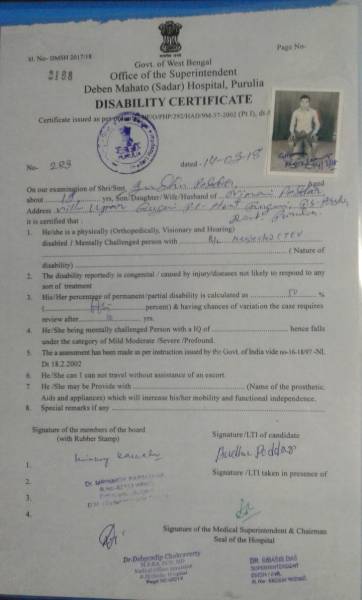 Sl. No- DMSH 2017/18
Page No-
Govt. of West Bengal
Office of the Superintendent
Deben Mahato (Sadar) Hospital, Purulia
DISABILITY CERTIFICATE
Certificate issued as per
No- 203
dated - 14-03-18
On our examination of Shri/Smt. Poddar Aged
about yrs, Son/Daughter/Wife/Husband of Poddar
Address
it is certified that :
1. He/she is a physically (Orthopedically, Visionary and Hearing)
disabled / Mentally Challenged person with B/L Neglected CTEV
(Nature of
disability)
2. The disability reportedly is congenital / caused by injury/diseases not likely to respond to any
sort of treatment
3. His/Her percentage of permanent/partial disability is calculated as 50 %
( percent) & having chances of variation the case requires
review after yrs.
4. He/She being mentally challenged Person with a IQ of hence falls
under the category of Mild Moderate /Severe /Profound.
5. The a assessment has been made as per instruction issued by the Govt. of India vide no-16-18/97 -NI.
Dt 18.2.2002
6. He/She can I can not travel without assistance of an escort.
7. He /She may be Provide with (Name of the prosthetic
Aids and appliances) which will increase his/her mobility and functional independence.
8. Special remarks if any
Signature of the members of the board
(with Rubber Stamp)
Signature /LTI of candidate
Poddar
1.
Signature /LTI taken in presence of
2.
3.
4.
Signature of the Medical Superintendent & Chairman
Seal of the Hospital
Dr. Debaradip Chakraverty
SUPERINTENDENT